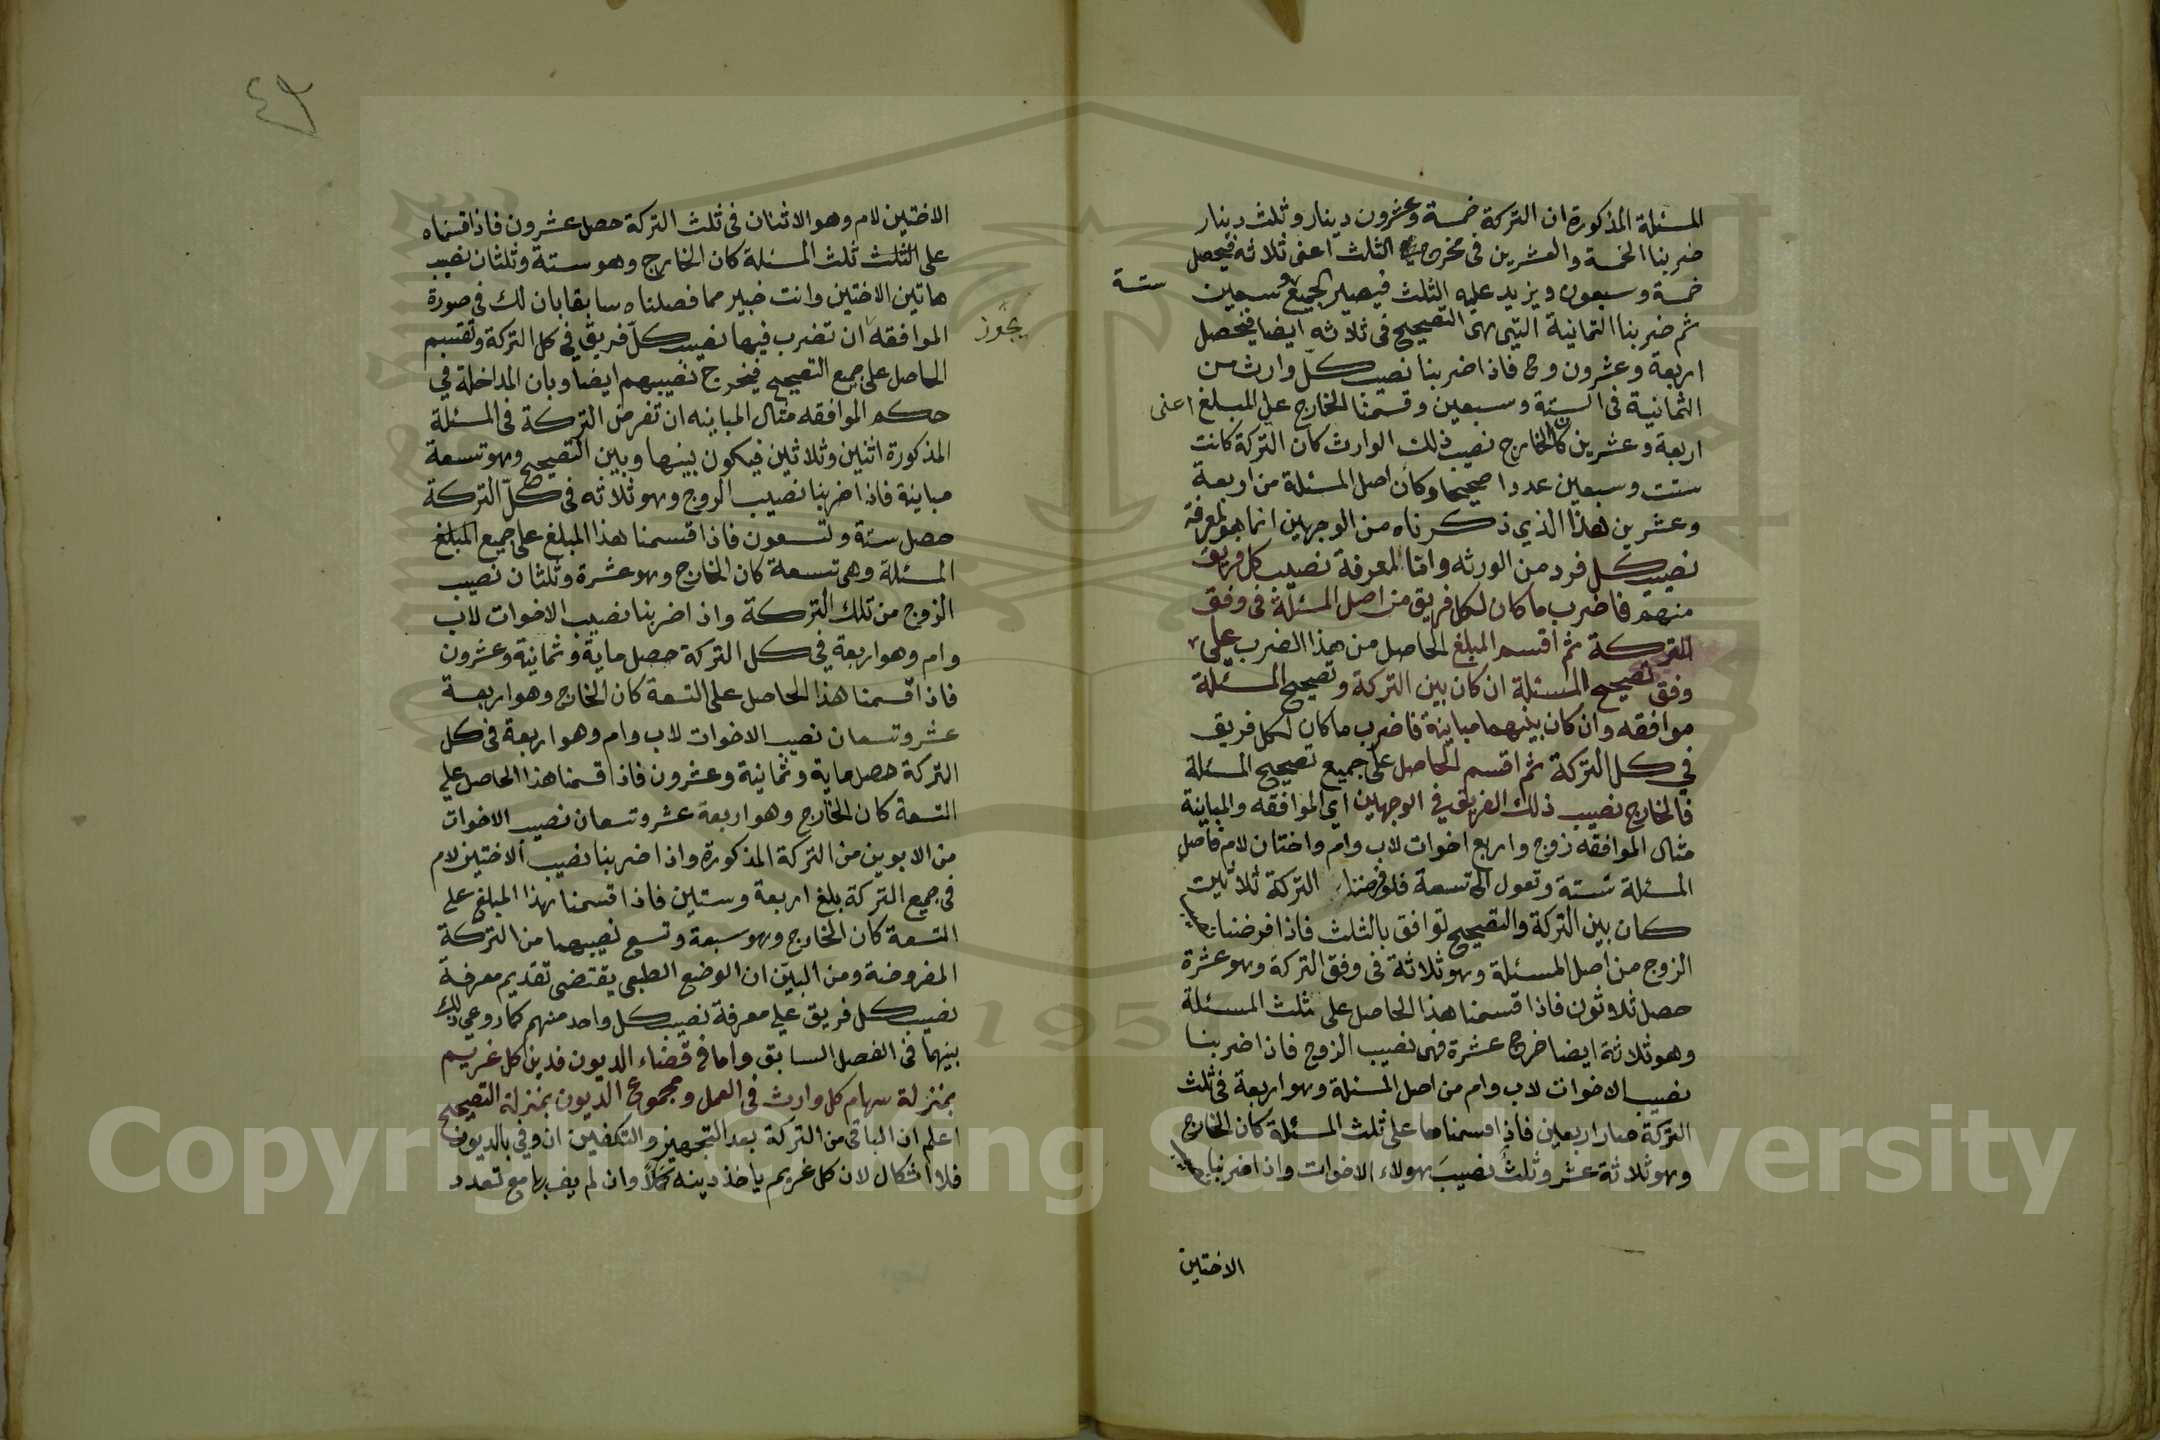 المسئلة المذكورة ان التركة خمسة وعشرون دينار وثلث دينار
ضربنا الخمسة والعشرين فى مخرج الثلث اعنى ثلاثه فيحصل
خمسة وسبعون ويزيد عليه الثلث فيصير الجميع وسبعين
ستة
ثم ضربنا الثمانية التيى هى التصحيح فى ثلاثه ايضا فيحصل
اربعة وعشرون وح فاذا ضربنا نصيب كلّ وارث من
الثمانية فى الستة وسبعين وقسمنا الخارج على المبلغ اعنى
اربعة وعشرين كان الخارج نصيب ذلك الوارث كان التركة كانت
ستت وسبعين عددا صحيحا وكان اصل المسئلة من اربعة
وعشرين هذا الذي ذكرناه من الوجهين انما هو لمعرفة
نصيب كل فرد من الورثه وامّا لمعرفة نصيب كل فريق
منهم فاضرب ما كان لكل فريق من اصل المسئلة فى وفق
التركة ثم اقسم المبلغ الحاصل من هذا الضرب على
وفق تصحيح المسئلة ان كان بين التركة وتصحيح المسئلة
موافقه وان كان بينهما مباينة فاضرب ما كان لكل فريق
في كل التركة ثم اقسم الحاصل على جميع تصحيح المسئلة
فالخارج نصيب ذلك الفريق في الوجهين اى الموافقه والمباينة
مثال الموافقه زوج واربع اخوات لاب وام واختان لام فاصل
المسئلة ستة وتعول الى تسعة فلو فرضنا التركة ثلاثين
كان بين التركة والتصحيح توافق بالثلث فاذا فرضنا
الزوج من اصل المسئلة وهو ثلاثة فى وفق التركة وهو عشرة
حصل ثلاثون فاذا قسمنا هذا الحاصل على ثلث المسئلة
وهو ثلاثة ايضا خرج عشرة فهى نصيب الزوج فاذا ضربنا
نصيب الاخوات لاب وام من اصل المسئلة وهو اربعة فى ثلث
التركة صار اربعين فاذا قسمناها على ثلث المسئلة كان الخارج
وهو ثلاثة عشر وثلث نصيب هولاء الاخوات واذا ضربنا
الاختين
٤٩
الاختين لام وهو الاثنان فى ثلث التركة حصل عشرون فاذا قسمناه
على الثلث ثلث المسئلة كان الخارج وهو ستة وثلثان نصيب
هاتين الاختين وانت خبير مما فصلناه سابقا بان لك فى صورة
يجوز
الموافقه ان تضرب فيها نصيب كلّ فريق في كل التركة وتقسم
الحاصل على جميع التصحيح فيخرج نصيبهم ايضا وبان المداخلة في
حكم الموافقه مثال المباينه ان تفرض التركة فى المسئلة
المذكورة اثنين وثلاثين فيكون بينها وبين التصحيح وهو تسعة
مباينة فاذا ضربنا نصيب الزوج وهو ثلاثه فى كلّ التركة
حصل ستة وتسعون فاذا قسمنا هذا المبلغ على جميع المبلغ
المسئلة وهى تسعة كان الخارج وهو عشرة وثلثان نصيب
الزوج من تلك التركة واذا ضربنا نصيب الاخوات لاب
وام وهو اربعة في كل التركة حصل ماية وثمانية وعشرون
فاذا قسمنا هذا الحاصل على التسعة كان الخارج وهو اربعة
عشر وتسعان نصيب الاخوات لاب وام وهو اربعة فى كل
التركة حصل ماية وثمانية وعشرون فاذا قسمنا هذا الحاصل على
التسعة كان الخارج وهو اربعة عشر وتسعان نصيب الاخوات
من الابوين من التركة المذكورة واذا ضربنا نصيب الاختين لام
فى جميع التركة بلغ اربعة وستين فاذا قسمنا هذا المبلغ على
التسعة كان الخارج وهو سبعة وتسع نصيبهما من التركة
المفروضة ومن البيّن ان الوضع الطبعى يقتضى تقديم معرفة
نصيب كل فريق على معرفة نصيب كل واحد منهم كما روعى ذلك
بينهما فى الفصل السابق واما فى قضاء الديون فدين كل غريم
بمنزلة سهام كل وارث فى العمل ومجموع الديون بمنزلة التصحيح
اعلم ان الباقى من التركة بعد التجهيز والتكفين ان وفي بالديون
فلا اشكال لان كل غريم ياخذ دينه كملاً وان لم يف بها مع تعدد
1957
Copyright © King Saud University